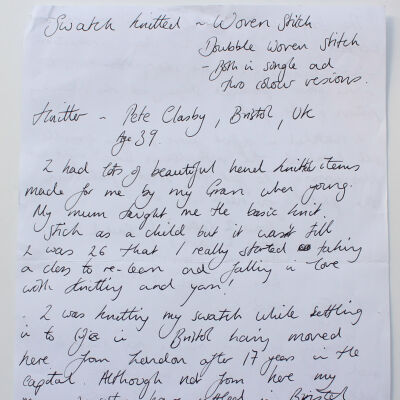 Swatch knitted ~ Woven Stitch
Doubble Woven stitch
- Both in single and
two colour vesions.
Knitter ~ Pete Clasby, Bristol, UK
Age 39.
I had lots of beautiful hand knitted items
made for me by my Gran when young.
My mum taught me the basic knit
stich as a child but it wasn't till
I was 26 that I really started taking
a class to re-learn and falling in love
with knitting and yarn!
. I was knitting my swatch while settling
in to life in Bristol having moved
here from London after 17 years in the
capital. Although not from here my
settled in Bristol